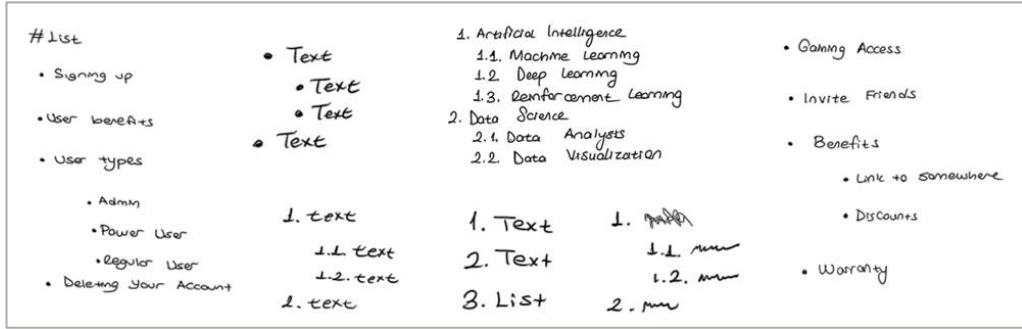 # List
• Signing up
• User benefits
• User types
• Admin
• Power User
• Regular User
• Deleting Your Account
• Text
• Text
• Text
• Text
1. text
1.1. text
1.2. text
2. text
1. Artificial Intelligence
1.1. Machine Learning
1.2 Deep Learning
1.3. Reinforcement Learning
2. Data Science
2.1. Data Analysts
2.2. Data Visualization
1. Text
2. Text
3. List
1.
1.1.
1.2.
2.
• Gaming Access
• Invite Friends
• Benefits
• Link to somewhere
• Discounts
• Warranty